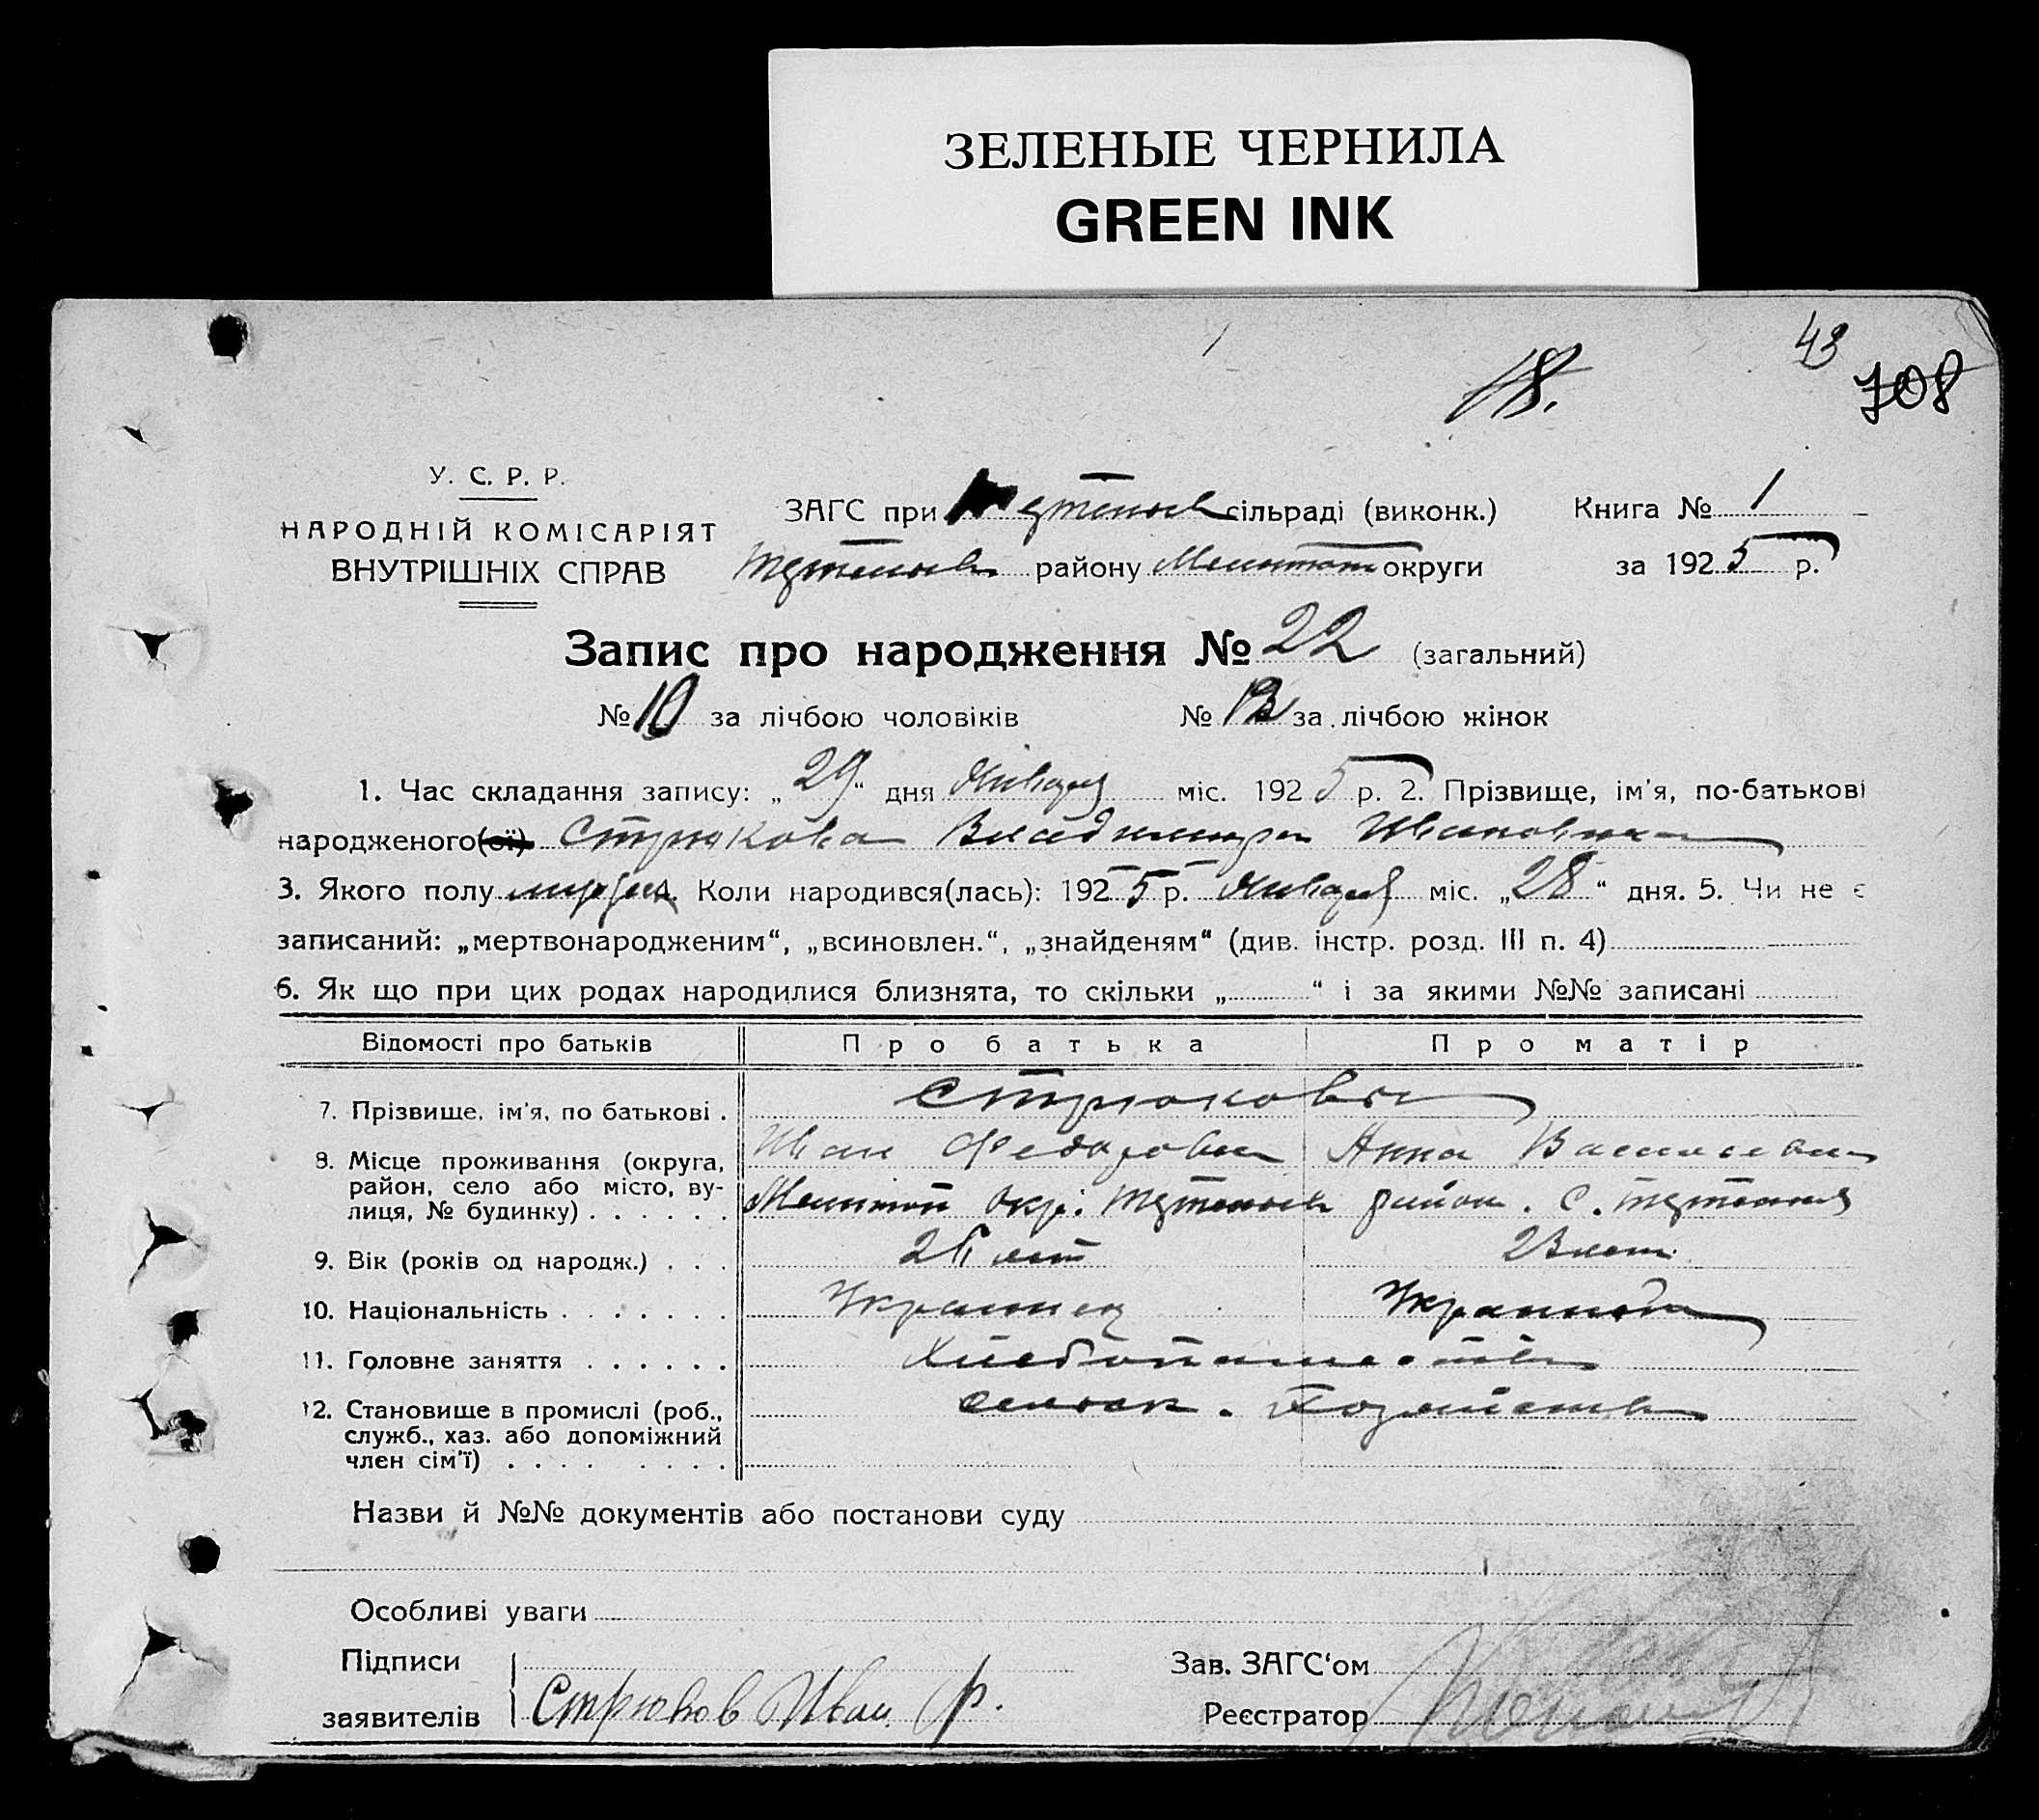 ЗЕЛЕНЫЕ ЧЕРНИЛА
GREEN INK
43
18.
708
У. С. Р. Р.
НАРОДНІЙ КОМІСАРІЯТ
ВНУТРІШНІХ СПРАВ
ЗАГС при сільраді (виконк.) Книга № 1
району округи за 1925 р.
Запис про народження № 22 (загальний)
№ 10 за лічбою чоловіків № за лічбою жінок
1. Час складання запису: „29“ дня Января міс. 1925 р. 2. Прізвище, ім'я, по-батькові
народженого(ої) Стрюкова Владимира Ивановича
3. Якого полу 4. Коли народився(лась): 1925 р. Января міс. „28“ дня. 5. Чи не є
записаний: „мертвонародженим“, „всиновлен.“, „знайденям“ (див. інстр. розд. III п. 4)
6. Як що при цих родах народилися близнята, то скільки „ “ і за якими №№ записані
Відомості про батьків Про батька Про матір
7. Прізвище, ім'я, по батькові . Стрюковы
Иван Федорович Анна Васильевна
8. Місце проживання (округа,
район, село або місто, ву-
лиця, № будинку) . . . . . . Мелитоп окр: район. с.
9. Вік (років од народж.) . . . лет 23 лет
10. Національність . . . . . . . Украинец Украинка
11. Головне заняття . . . . . . Хлебопашество
12. Становище в промислі (роб.,
служб., хаз. або допоміжний
член сім'ї) . . . . . . . . сельск.
Назви й №№ документів або постанови суду
Особливі уваги
Підписи
заявителів Стрюков Иван Ф.
Зав. ЗАГС‘ом
Реєстратор